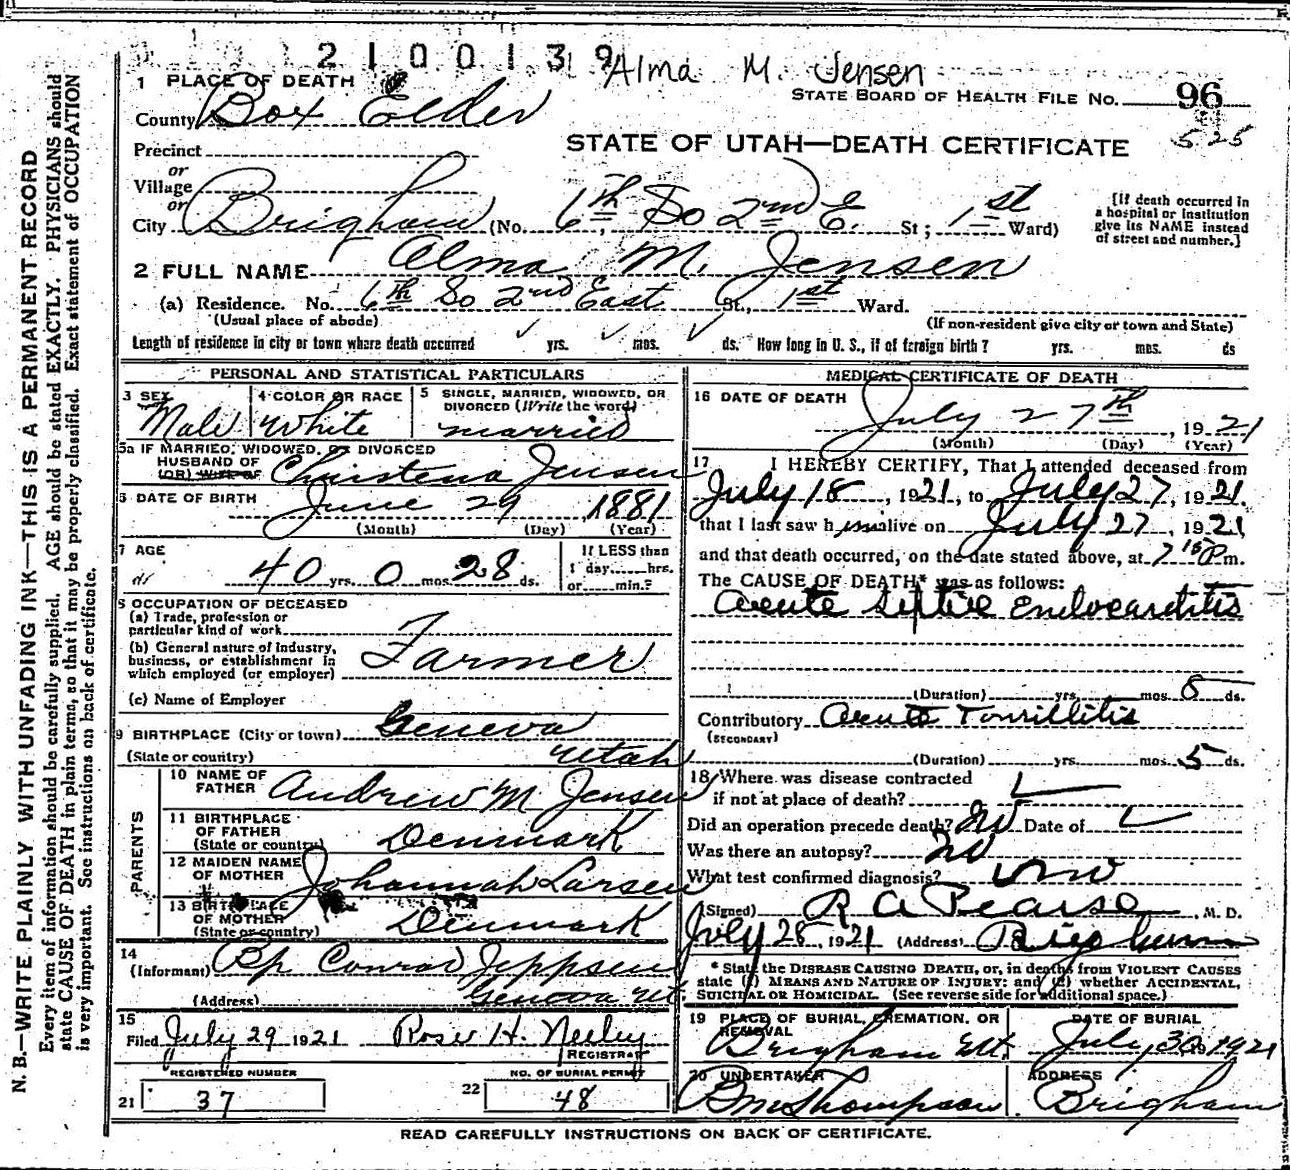 2100139
Alma M. Jensen
1 PLACE OF DEATH
STATE BOARD OF HEALTH FILE NO. 96
County Box Elder
525
STATE OF UTAH—DEATH CERTIFICATE
Precinct
or
Village
or
City Brigham (No. 6th So 2nd E. St; 1st Ward)
[If death occurred in
a hospital or institution
give its NAME instead
of street and number.]
2 FULL NAME Alma M. Jensen
(a) Residence. No. 6th So 2nd East St., 1st Ward.
(Usual place of abode) (If non-resident give city or town and State)
Length of residence in city or town where death occurred yrs. mos. ds. How long in U. S., if of foreign birth? yrs. mos. ds
PERSONAL AND STATISTICAL PARTICULARS
3 SEX Male
4 COLOR OR RACE White
5 SINGLE, MARRIED, WIDOWED, OR
DIVORCED (Write the word)
married
5a IF MARRIED, WIDOWED, OR DIVORCED
HUSBAND OF
(OR) WIFE OF Christena Jensen
6 DATE OF BIRTH June 29 1881
(Month) (Day) (Year)
7 AGE
40 yrs. 0 mos. 28 ds.
If LESS than
1 day......hrs.
or......min.?
8 OCCUPATION OF DECEASED
(a) Trade, profession or
particular kind of work
(b) General nature of industry,
business, or establishment in
which employed (or employer)
Farmer
(c) Name of Employer
9 BIRTHPLACE (City or town) Geneva
(State or country) Utah
PARENTS
10 NAME OF
FATHER Andrew M Jensen
11 BIRTHPLACE
OF FATHER
(State or country) Denmark
12 MAIDEN NAME
OF MOTHER Johannah Larsen
13 BIRTHPLACE
OF MOTHER
(State or country) Denmark
14
(Informant) Bp Conrad Jeppsen
(Address) Geneva Ut.
15
Filed July 29 1921 Rose H. Neeley
REGISTRAR
REGISTERED NUMBER
21 37
NO. OF BURIAL PERMIT
22 48
MEDICAL CERTIFICATE OF DEATH
16 DATE OF DEATH
July 27th, 1921
(Month) (Day) (Year)
17 I HEREBY CERTIFY, That I attended deceased from
July 18, 1921, to July 27, 1921
that I last saw him alive on July 27, 1921
and that death occurred, on the date stated above, at 7 15 P m.
The CAUSE OF DEATH* was as follows:
Acute Septive Endocarditis
(Duration) yrs. mos. 8 ds.
Contributory Acute Tonsillitis
(SECONDARY)
(Duration) yrs. mos. 5 ds.
18 Where was disease contracted
if not at place of death?
Did an operation precede death? No Date of
Was there an autopsy? No
What test confirmed diagnosis?
(Signed) R A Pearse, M. D.
July 28, 1921 (Address) Brigham
* State the DISEASE CAUSING DEATH, or, in deaths from VIOLENT CAUSES
state (1) MEANS AND NATURE OF INJURY: and (2) whether ACCIDENTAL,
SUICIDAL OR HOMICIDAL. (See reverse side for additional space.)
19 PLACE OF BURIAL, CREMATION, OR
REMOVAL
Brigham Ut.
DATE OF BURIAL
July 30 1921
20 UNDERTAKER
Thompson
ADDRESS
Brigham
READ CAREFULLY INSTRUCTIONS ON BACK OF CERTIFICATE.
N. B.—WRITE PLAINLY WITH UNFADING INK—THIS IS A PERMANENT RECORD
Every item of information should be carefully supplied. AGE should be stated EXACTLY. PHYSICIANS should
state CAUSE OF DEATH in plain terms, so that it may be properly classified. Exact statement of OCCUPATION
is very important. See instructions on back of certificate.